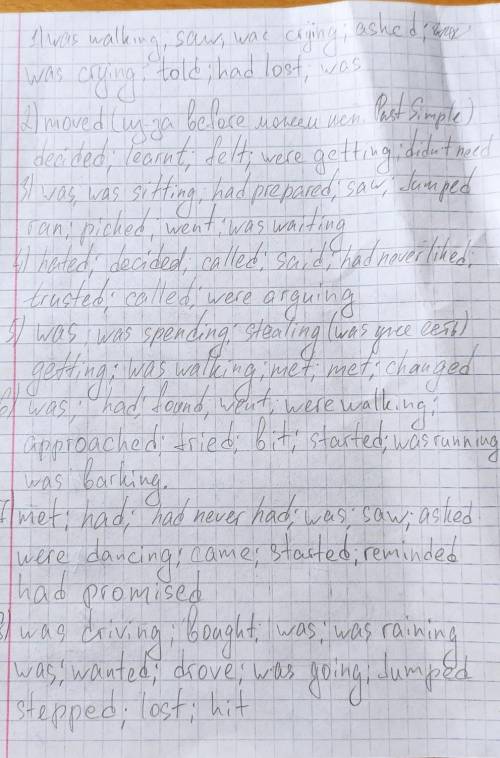 1) was walking, saw, was crying; asked; was
was crying; told; had lost, was
2) moved (из-за before можем исп. Past Simple)
decided; learnt; felt; were getting; didn't need
3) was, was sitting, had prepared; saw; jumped
ran; piched; went; was waiting
4) hated; decided, called; said; had never liked;
trusted; called; were arguing
5) was; was spending; stealing (was уже есть)
getting; was walking; met; met; changed
6) was; had; found, went; were walking;
approached; tried; bit; started; was running
was barking.
7) met; had; had never had; was; saw; asked
were dancing; came; started; reminded
had promised
8) was driving; bought; was; was raining
was; wanted; drove; was going; jumped
stepped; lost; hit